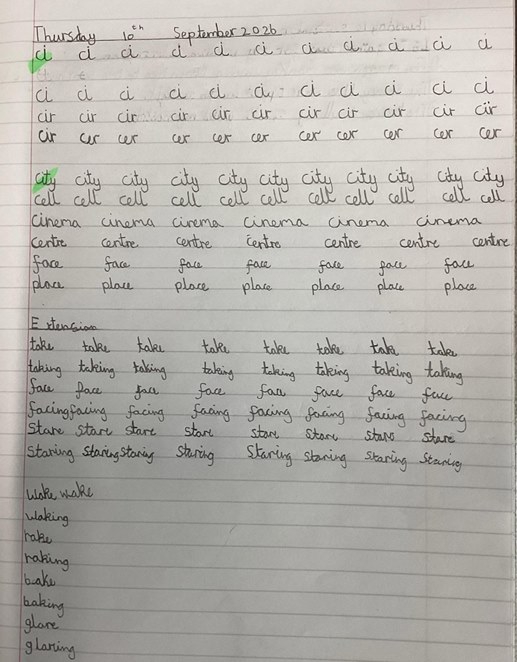 Thursday 10th September 2026
ci ci ci ci ci ci ci ci ci ci ci
ci ci ci ci ci ci ci ci ci ci ci
cir cir cir cir cir cir cir cir cir cir cir
cir cer cer cer cer cer cer cer cer cer cer
city city city city city city city city city city city
cell cell cell cell cell cell cell cell cell cell cell
cinema cinema cinema cinema cinema cinema
centre centre centre centre centre centre centre
face face face face face face face
place place place place place place place
Extension
take take take take take take take take
taking taking taking taking taking taking taking taking
face face face face face face face face
facing facing facing facing facing facing facing facing
Stare stare stare stare stare stare stare stare
Staring staring staring staring Staring staring staring staring
Wake wake
waking
rake
raking
bake
baking
glare
glaring